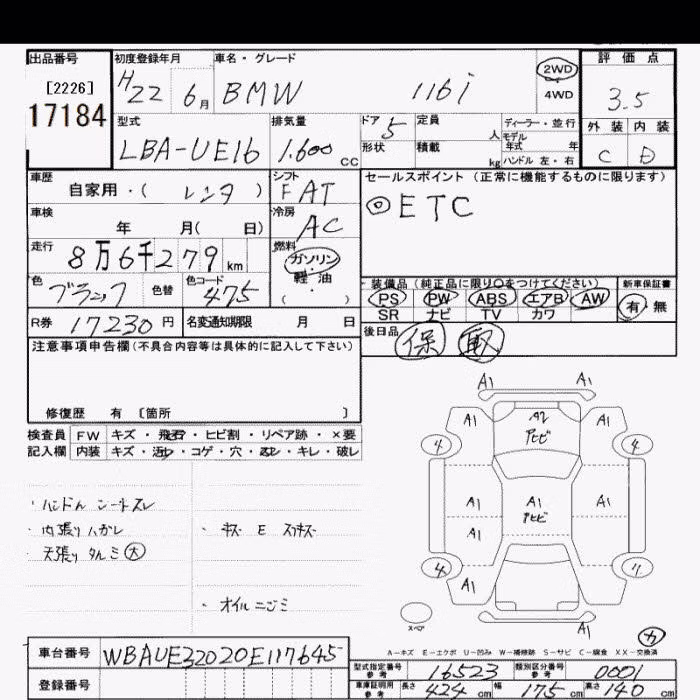 出品番号 初度登録年月 車名・グレード 2WD 評価点
[2226] H22 6月 BMW 116i 4WD 3.5
17184
型式 排気量 ドア 5 定員 人 ディーラー・並行 外装 内装
LBA-UE16 1.600cc 形状 積載 kg モデル年式 年 C D
ハンドル 左・右
車歴 自家用・( レンタ ) シフト FAT セールスポイント (正常に機能するものに限ります)
車検 年 月( 日) 冷房 AC ◎ETC
走行 8万6千279km 燃料 ガソリン・軽油 ( )
色 ブラック 色替 色コード 475 装備品 (純正品に限り○をつけてください) 新車保証書
PS PW ABS エアB AW 有・無
SR ナビ TV カワ
R券 17230円 名変通知期限 月 日 後日品 保 取
注意事項申告欄(不具合内容等は具体的に記入して下さい)
修復歴 有 〔箇所 〕
検査員 FW キズ・飛石・ヒビ割・リペア跡・×要
記入欄 内装 キズ・汚レ・コゲ・穴・スレ・キレ・破レ
・ハンドル シートスレ
・内張りハガレ ・キズ E スリキズ
・天張り タルミ 大
・オイルニジミ
A1 A1
A1 A2 A1
アヒビ
4 4
A1 A1 A1
アヒビ
A1
4 4
A1
A1
スペア カ
A-キズ E-エクボ U-凹み W-補修跡 S-サビ C-腐食 XX-交換済
車台番号 WBAUE32020E117645
登録番号
型式指定番号 参考 16523 類別区分番号 参考 0001
車庫証明用 参考 長さ 424cm 幅 175cm 高さ 140cm